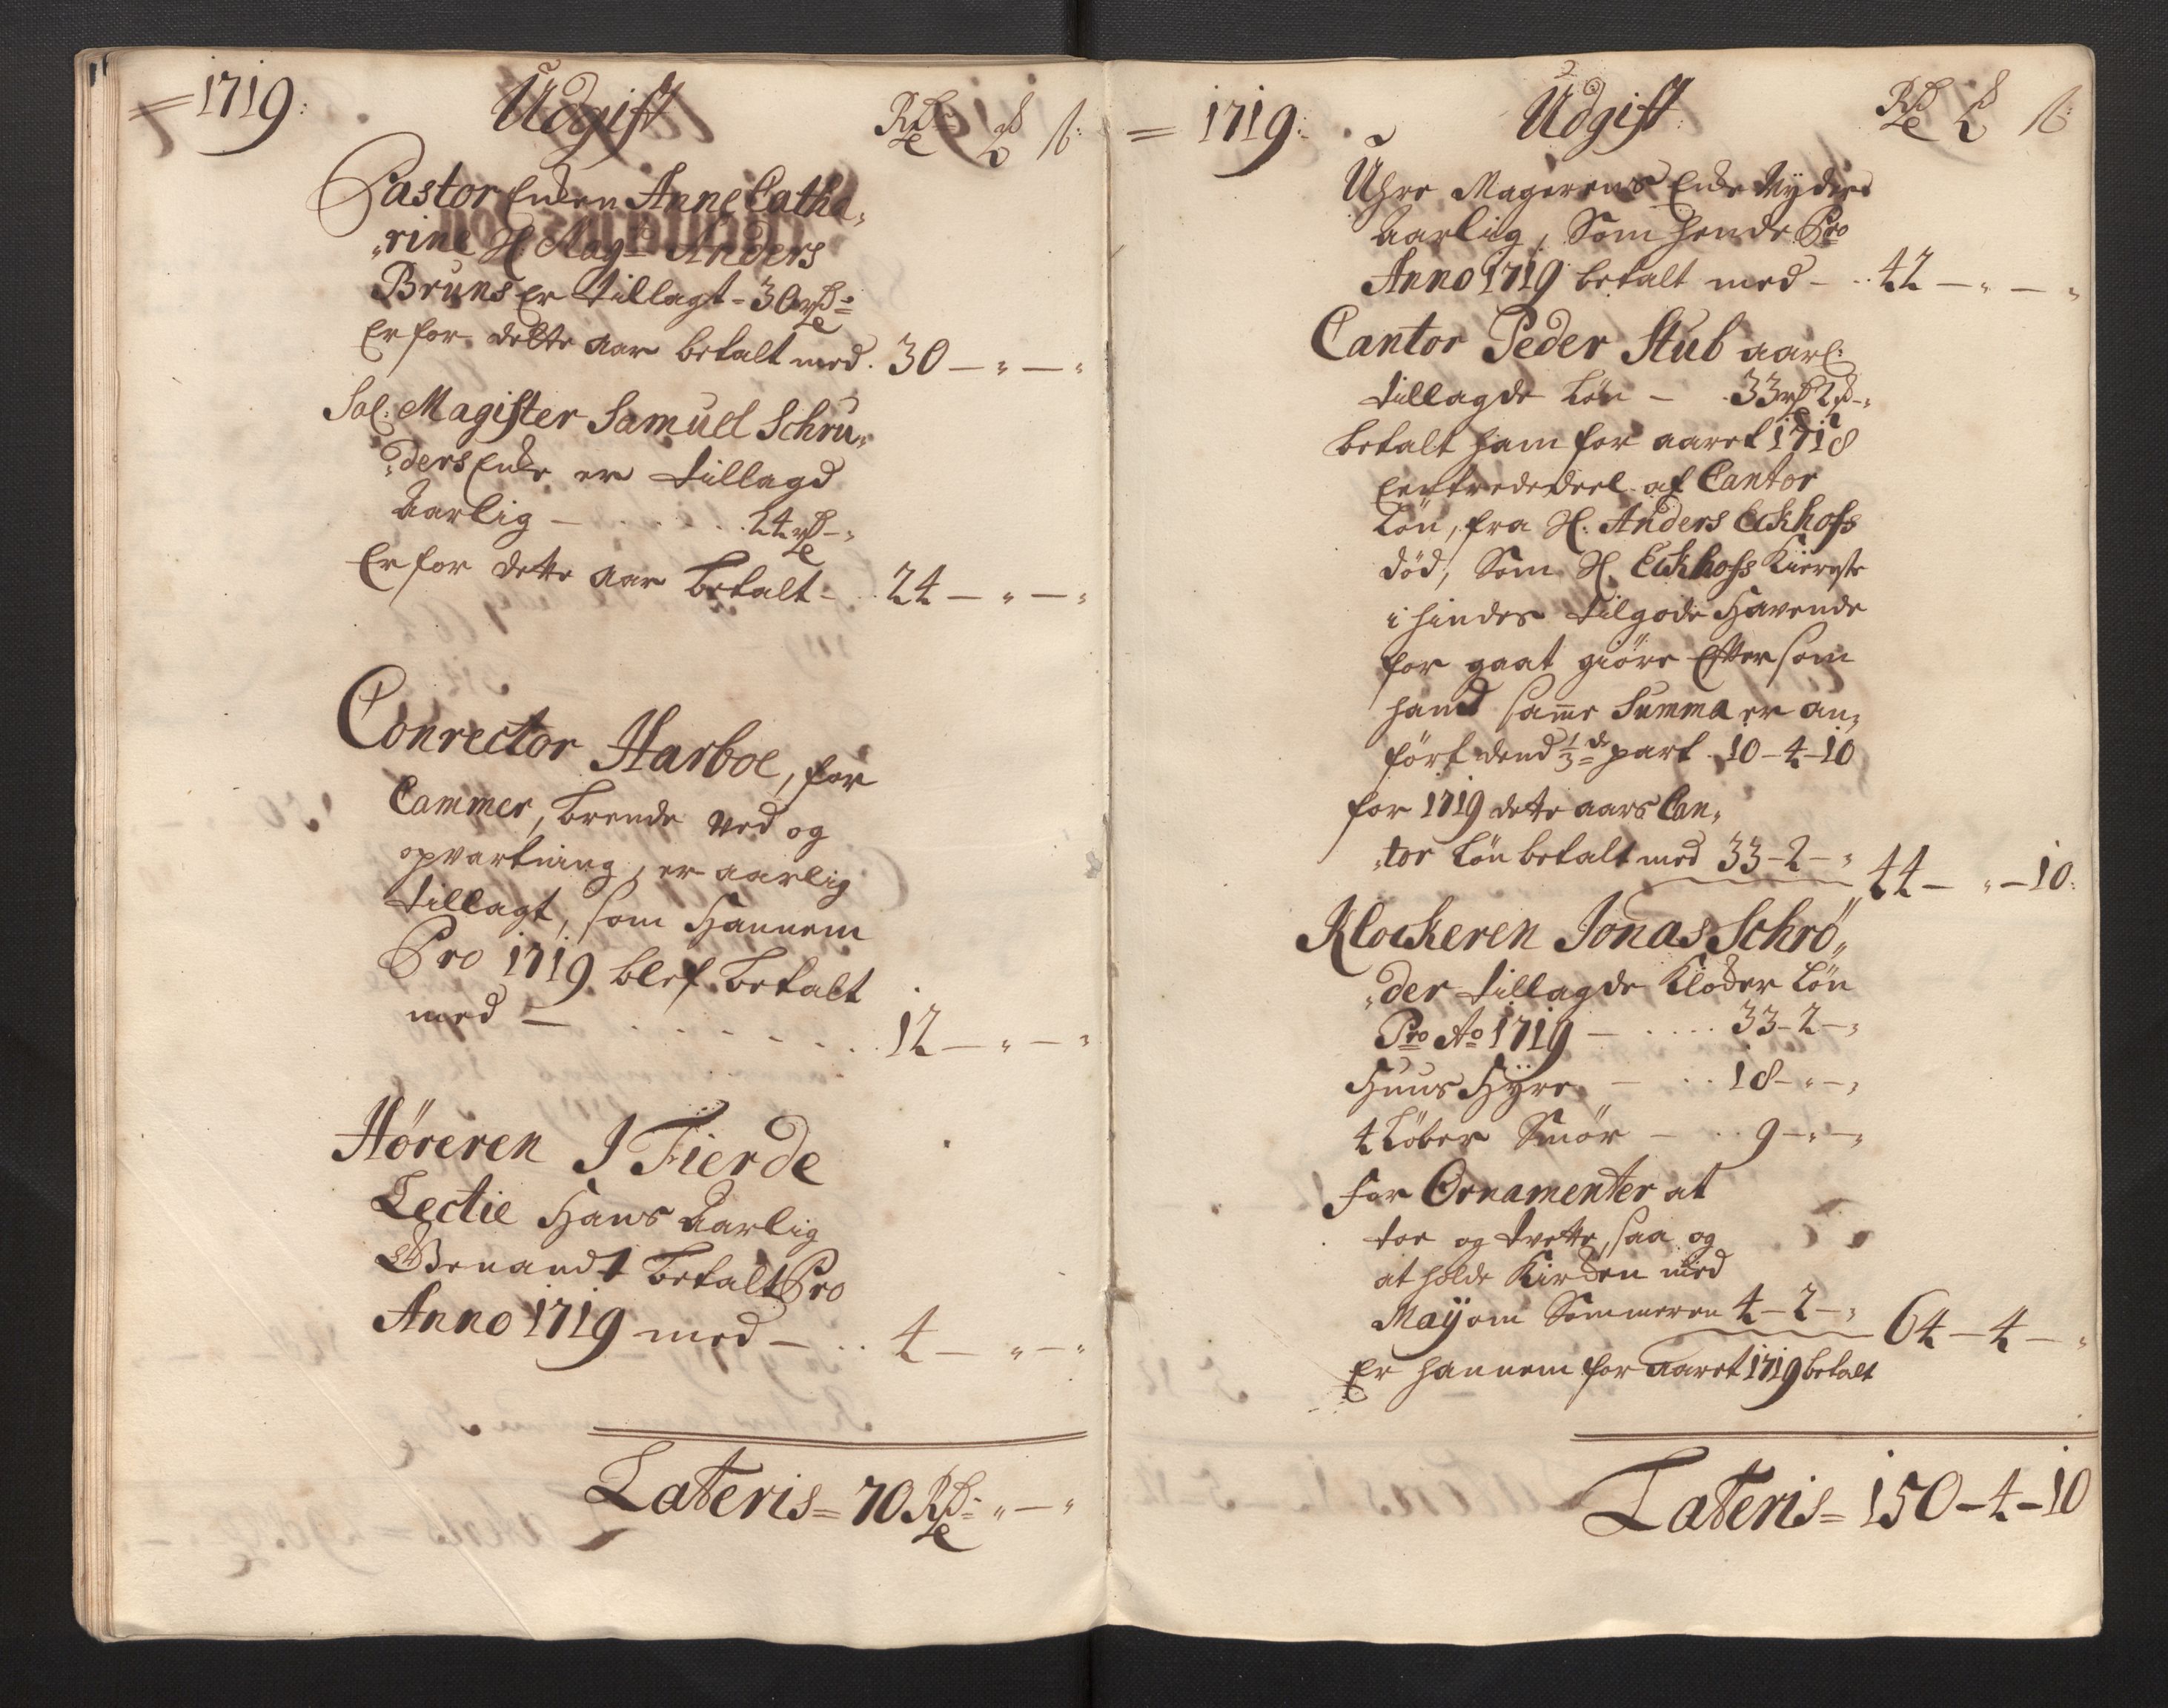 1719: Udgift Rdr ℳ ß:
Pastor Enken Anne Catha,,
,,rine H. Mag: Anders
Bruns er tillagt - 30 rdr:
Er for dette aar betalt med . 30 — „ — „
Sal: Magister Samuel Schrü,,
,,ders Enke er tillagd
Aarlig — . . . . . 24 rdr — „
Er for dette aar betalt - . 24 — „ — „
Conrector Harboe, for
Cammer, brende ved og
opvartning, er aarlig
tillagt, som hannem
Pro 1719 blef betalt
med — . . . . . . . 12 — „ — „
Høreren I Fierde
Lectie hans Aarlig
Benandt betalt Pro
Anno 1719 med — . . 4 — „ — „
Lateris = 70 Rdr: „ — „
1719: Udgift: Rdr ℳ ß:
Uhre Magerens Enke nyder
Aarlig, som hende Pro
Anno 1719 betalt med - . 42 — „ — „
Cantor Peder Stub aarl:
tillagde Løn — . 33 rdr 2 ℳ - „
betalt ham for aaret 1718
Een trededeel af Cantor
Løn, fra H: Anders Eckhofs
død, som H. Eckhofs Kiereste
i hindes tilgode havende
for gaat giöre Efter som
hand samme Summa er an,,
fört dend 1/3 de part . 10 - 4 - 10
for 1719 dette aars Can,,
,,tor Løn betalt med 33 - 2 - „ 44 — „ — 10:
Klockeren Jonas Schrö,,
,,der tillagde Klocker Løn
Pro Ao 1719 — . . . . 33 - 2 - „
Huus Hÿre — . . 18 - „ - „
4 Løber Smör — . . 9 - „ - „
For Ornamenter at
toe og tvette, saa og
at holde Kircken med
Maÿ om Sommeren 4 - 2 - „ 64 — 4 — „
Er hannem for aaret 1719 betalt
Lateris = 150 - 4 - 10